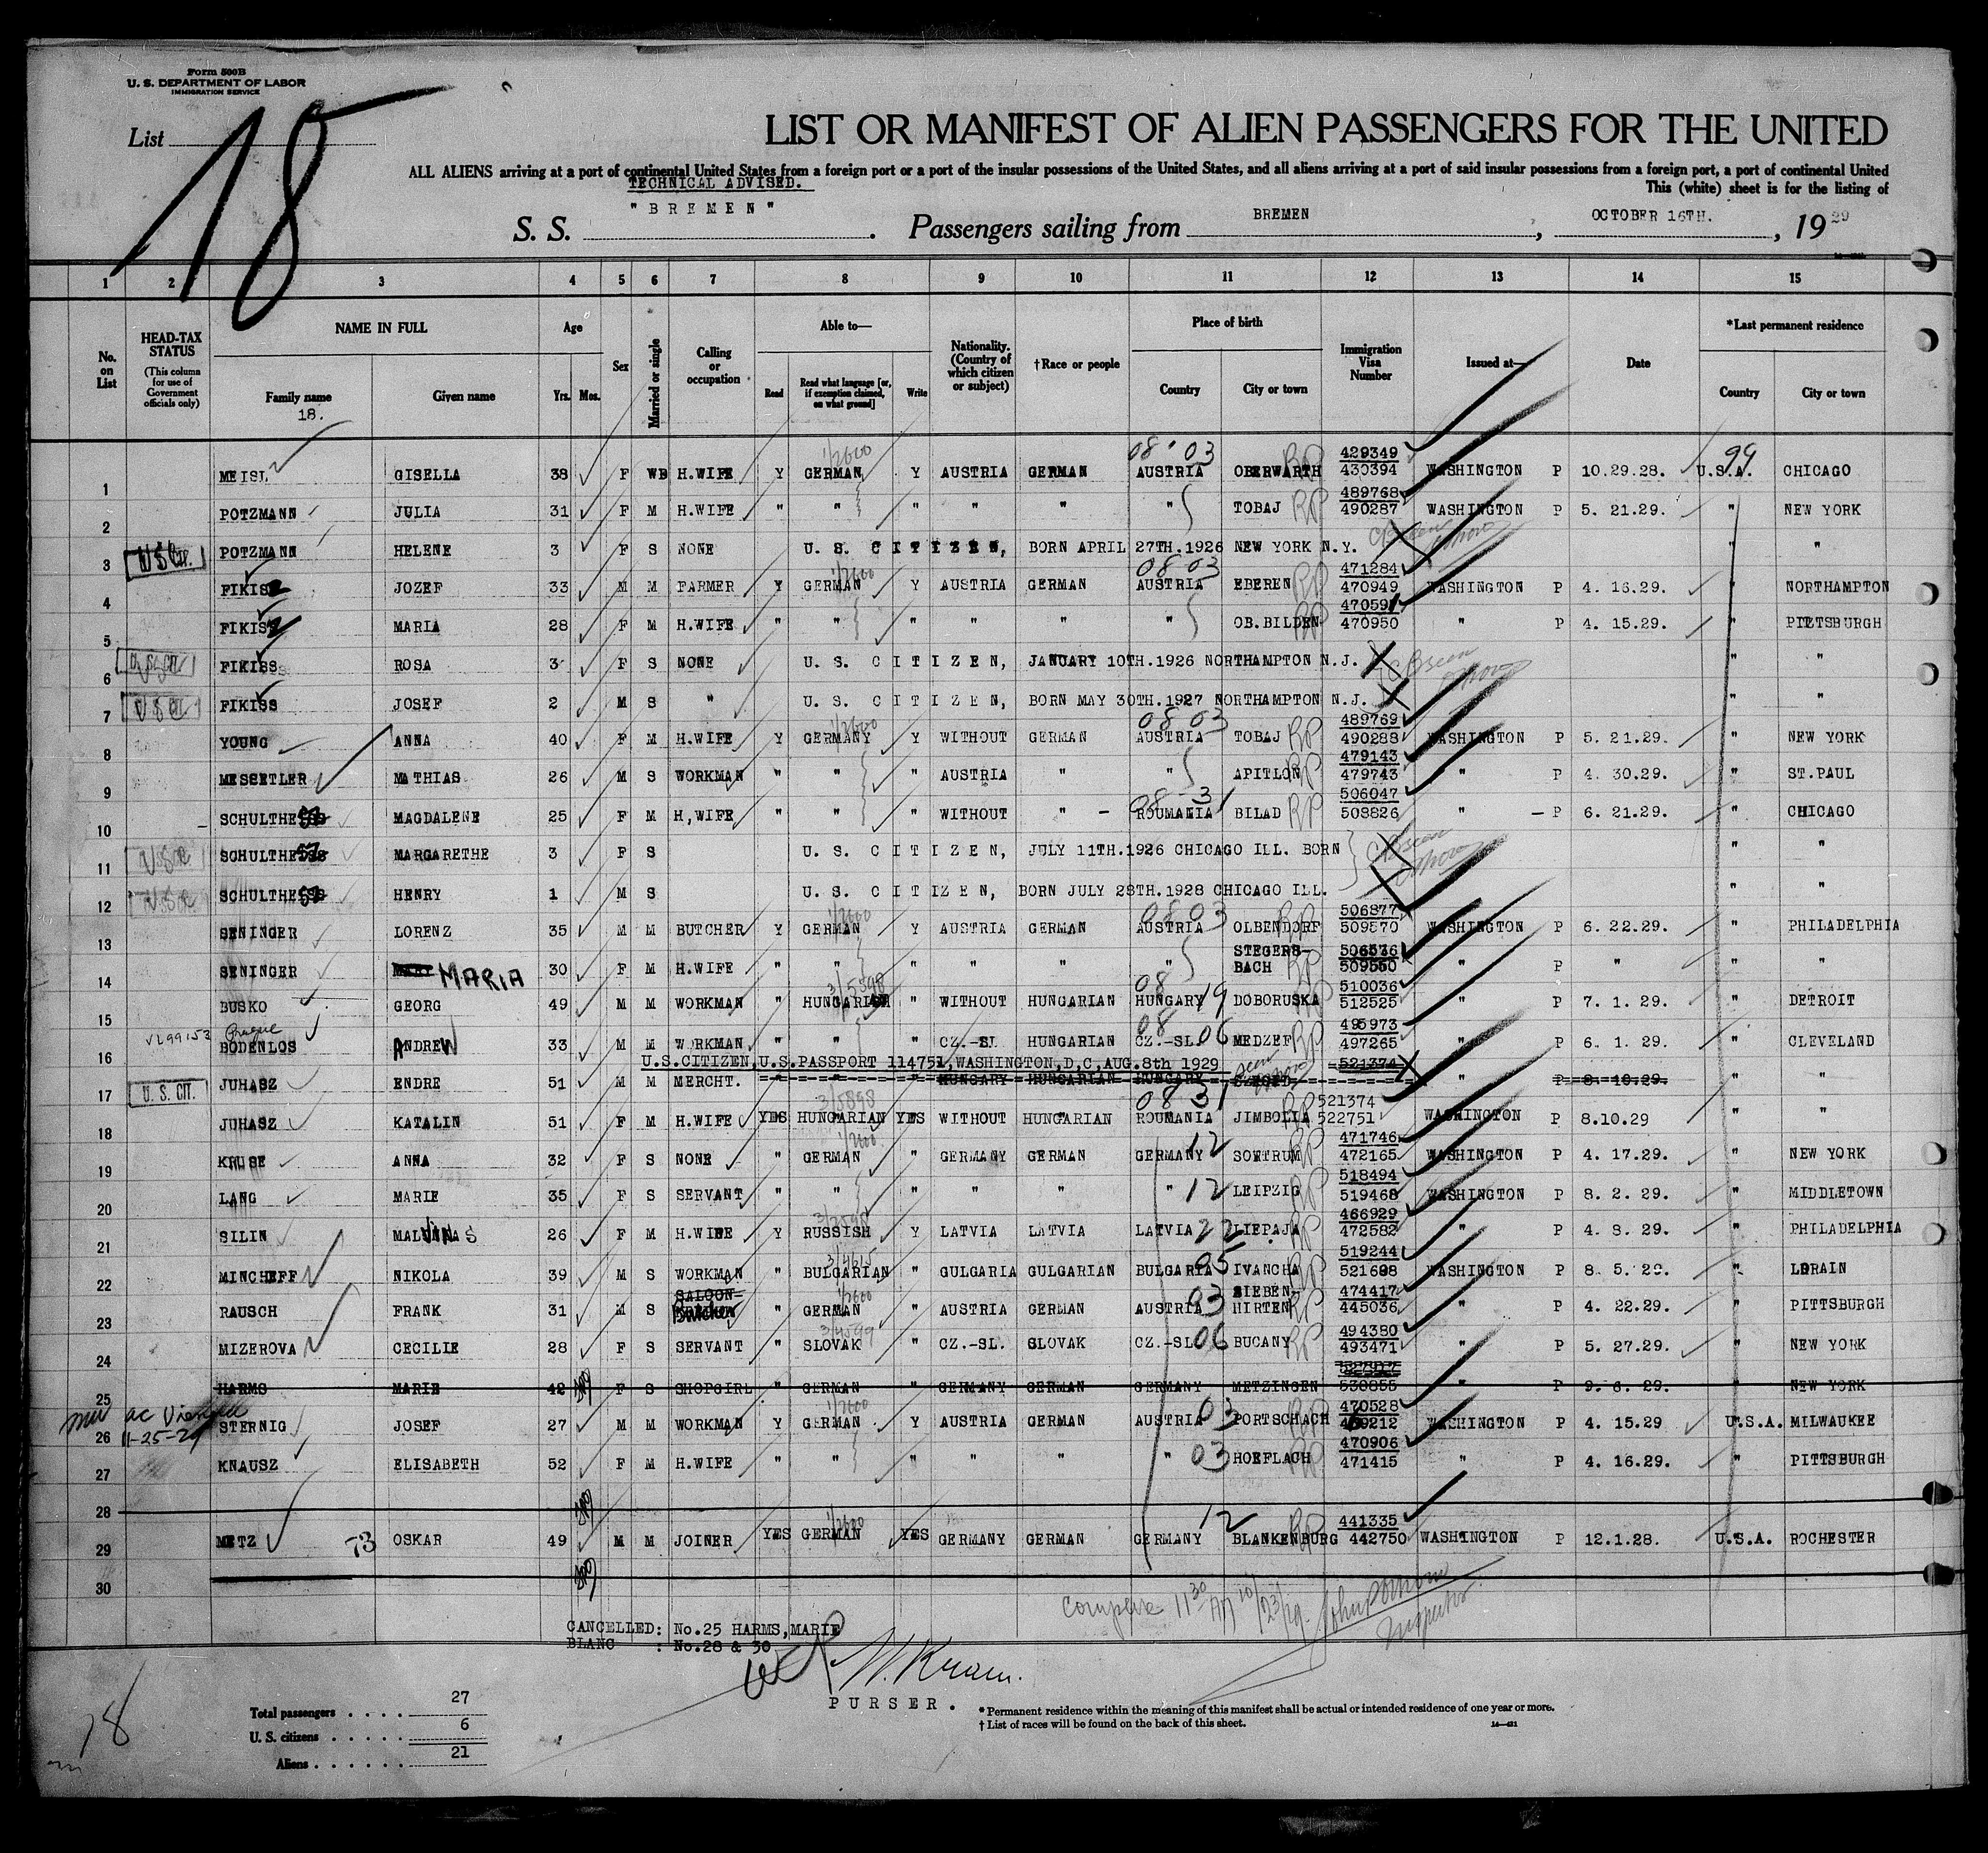 Form 500B
U. S. DEPARTMENT OF LABOR
IMMIGRATION SERVICE
List 18
LIST OR MANIFEST OF ALIEN PASSENGERS FOR THE UNITED
ALL ALIENS arriving at a port of continental United States from a foreign port or a port of the insular possessions of the United States, and all aliens arriving at a port of said insular possessions from a foreign port, a port of continental United
This (white) sheet is for the listing of
TECHNICAL ADVISED.
S. S. "BREMEN". Passengers sailing from BREMEN, OCTOBER 16TH., 1929
1 2 3 4 5 6 7 8 9 10 11 12 13 14 15
No. on List
HEAD-TAX STATUS (This column for use of Government officials only)
NAME IN FULL Family name Given name
18.
Age Yrs. Mos.
Sex
Married or single
Calling or occupation
Able to— Read Read what language [or, if exemption claimed, on what ground] Write
Nationality. (Country of which citizen or subject)
†Race or people
Place of birth Country City or town
Immigration Visa Number
Issued at—
Date
*Last permanent residence Country City or town
08 03 429349 99
1 MEISL GISELLA 38 F WD H.WIFE Y GERMAN Y AUSTRIA GERMAN AUSTRIA OBERWARTH 430394 WASHINGTON P 10.29.28. U.S.A. CHICAGO
489768
2 POTZMANN JULIA 31 F M H.WIFE " " " " " " TOBAJ 490287 WASHINGTON P 5. 21.29. " NEW YORK
3 U.S. CIT. POTZMANN HELENE 3 F S NONE U. S. CITIZEN, BORN APRIL 27TH.1926 NEW YORK N.Y. " "
08 03 471284
4 FIKIS JOZEF 33 M M FARMER Y GERMAN Y AUSTRIA GERMAN AUSTRIA EBEREN 470949 WASHINGTON P 4. 16.29. " NORTHAMPTON
470591
5 FIKIS MARIA 28 F M H.WIFE " " " " " " OB.BILDEN 470950 " P 4. 15.29. " PITTSBURGH
6 U.S. CIT. FIKISS ROSA 3 F S NONE U. S. CITIZEN, JANUARY 10TH.1926 NORTHAMPTON N.J. " "
7 FIKISS JOSEF 2 M S " U. S. CITIZEN, BORN MAY 30TH.1927 NORTHAMPTON N.J. " "
08 03 489769
8 YOUNG ANNA 40 F M H.WIFE Y GERMANY Y WITHOUT GERMAN AUSTRIA TOBAJ 490288 WASHINGTON P 5. 21.29. " NEW YORK
479143
9 MESSETLER MATHIAS 26 M S WORKMAN " " " AUSTRIA " " APITLON 479743 " P 4. 30.29. " ST.PAUL
08 31 506047
10 SCHULTHE MAGDALENE 25 F M H,WIFE " " " WITHOUT " ROUMANIA BILAD 508826 " P 6. 21.29. " CHICAGO
11 SCHULTHE MARGARETHE 3 F S U. S. CITIZEN, JULY 11TH.1926 CHICAGO ILL. BORN " "
12 SCHULTHE HENRY 1 M S U. S. CITIZEN, BORN JULY 28TH.1928 CHICAGO ILL. " "
08 03 506877
13 SENINGER LORENZ 35 M M BUTCHER Y GERMAN Y AUSTRIA GERMAN AUSTRIA OLBENDORF 509570 WASHINGTON P 6. 22.29. " PHILADELPHIA
STEGERS- 506576
14 SENINGER MARIA 30 F M H.WIFE " " " " " " BACH 509550 " P " " "
08 19 510036
15 BUSKO GEORG 49 M M WORKMAN " HUNGARIAN " WITHOUT HUNGARIAN HUNGARY DOBORUSKA 512525 " P 7. 1. 29. " DETROIT
08 06 495973
16 BODENLOS ANDREW 33 M M WORKMAN " " " CZ.-SL HUNGARIAN CZ.-SL. MEDZEF 497265 " P 6. 1. 29. " CLEVELAND
U.S.CITIZEN,U.S.PASSPORT 114751,WASHINGTON,D,C,AUG.8th 1929 521374
17 U. S. CIT. JUHASZ ENDRE 51 M M MERCHT. HUNGARY HUNGARIAN HUNGARY " P 8. 10.29. " "
08 31 521374
18 JUHASZ KATALIN 51 F M H.WIFE YES HUNGARIAN YES WITHOUT HUNGARIAN ROUMANIA JIMBOLIA 522751 WASHINGTON P 8.10.29 " "
471746
19 KRUSE ANNA 32 F S NONE " GERMAN " GERMANY GERMAN GERMANY 12 SOKTRUM 472165 WASHINGTON P 4. 17.29. " NEW YORK
518494
20 LANG MARIE 35 F S SERVANT " " " " " " 12 LEIPZIG 519468 WASHINGTON P 8. 2. 29. " MIDDLETOWN
466929
21 SILIN MALVINAS 26 F M H.WIFE Y RUSSISH Y LATVIA LATVIA LATVIA 22 LIEPAJA 472582 " P 4. 8. 29. " PHILADELPHIA
519244
22 MINCHEFF NIKOLA 39 M S WORKMAN " BULGARIAN " GULGARIA GULGARIAN BULGARIA 05 IVANCHA 521698 WASHINGTON P 8. 5. 29. " LORAIN
SALOON- SIEBEN- 474417
23 RAUSCH FRANK 31 M S Butcher " GERMAN " AUSTRIA GERMAN AUSTRIA 03 HIRTEN 445036 " P 4. 22.29. " PITTSBURGH
494380
24 MIZEROVA CECILIE 28 F S SERVANT " SLOVAK " CZ.-SL. SLOVAK CZ.-SL 06 BUCANY 493471 " P 5. 27.29. " NEW YORK
25 HARMS MARIE 42 F S SHOPGIRL " GERMAN " GERMANY GERMAN GERMANY METZINGEN 530855 " P 9. 6. 29. " NEW YORK
470528
26 11-25-29 STERNIG JOSEF 27 M M WORKMAN Y GERMAN Y AUSTRIA GERMAN AUSTRIA 03 PORTSCHACH WASHINGTON P 4. 15.29 U.S.A. MILWAUKEE
470906
27 KNAUSZ ELISABETH 52 F M H.WIFE " " " " " " 03 HOEFLACH 471415 " P 4. 16.29. " PITTSBURGH
28
12 441335
29 METZ 73 OSKAR 49 M M JOINER YES GERMAN YES GERMANY GERMAN GERMANY BLANKENBURG 442750 WASHINGTON P 12.1.28. U.S.A. ROCHESTER
30
CANCELLED: No.25 HARMS,MARIE
BLANC : No.28 & 30
PURSER.
18
Total passengers 27
U. S. citizens 6
Aliens 21
* Permanent residence within the meaning of this manifest shall be actual or intended residence of one year or more.
† List of races will be found on the back of this sheet.